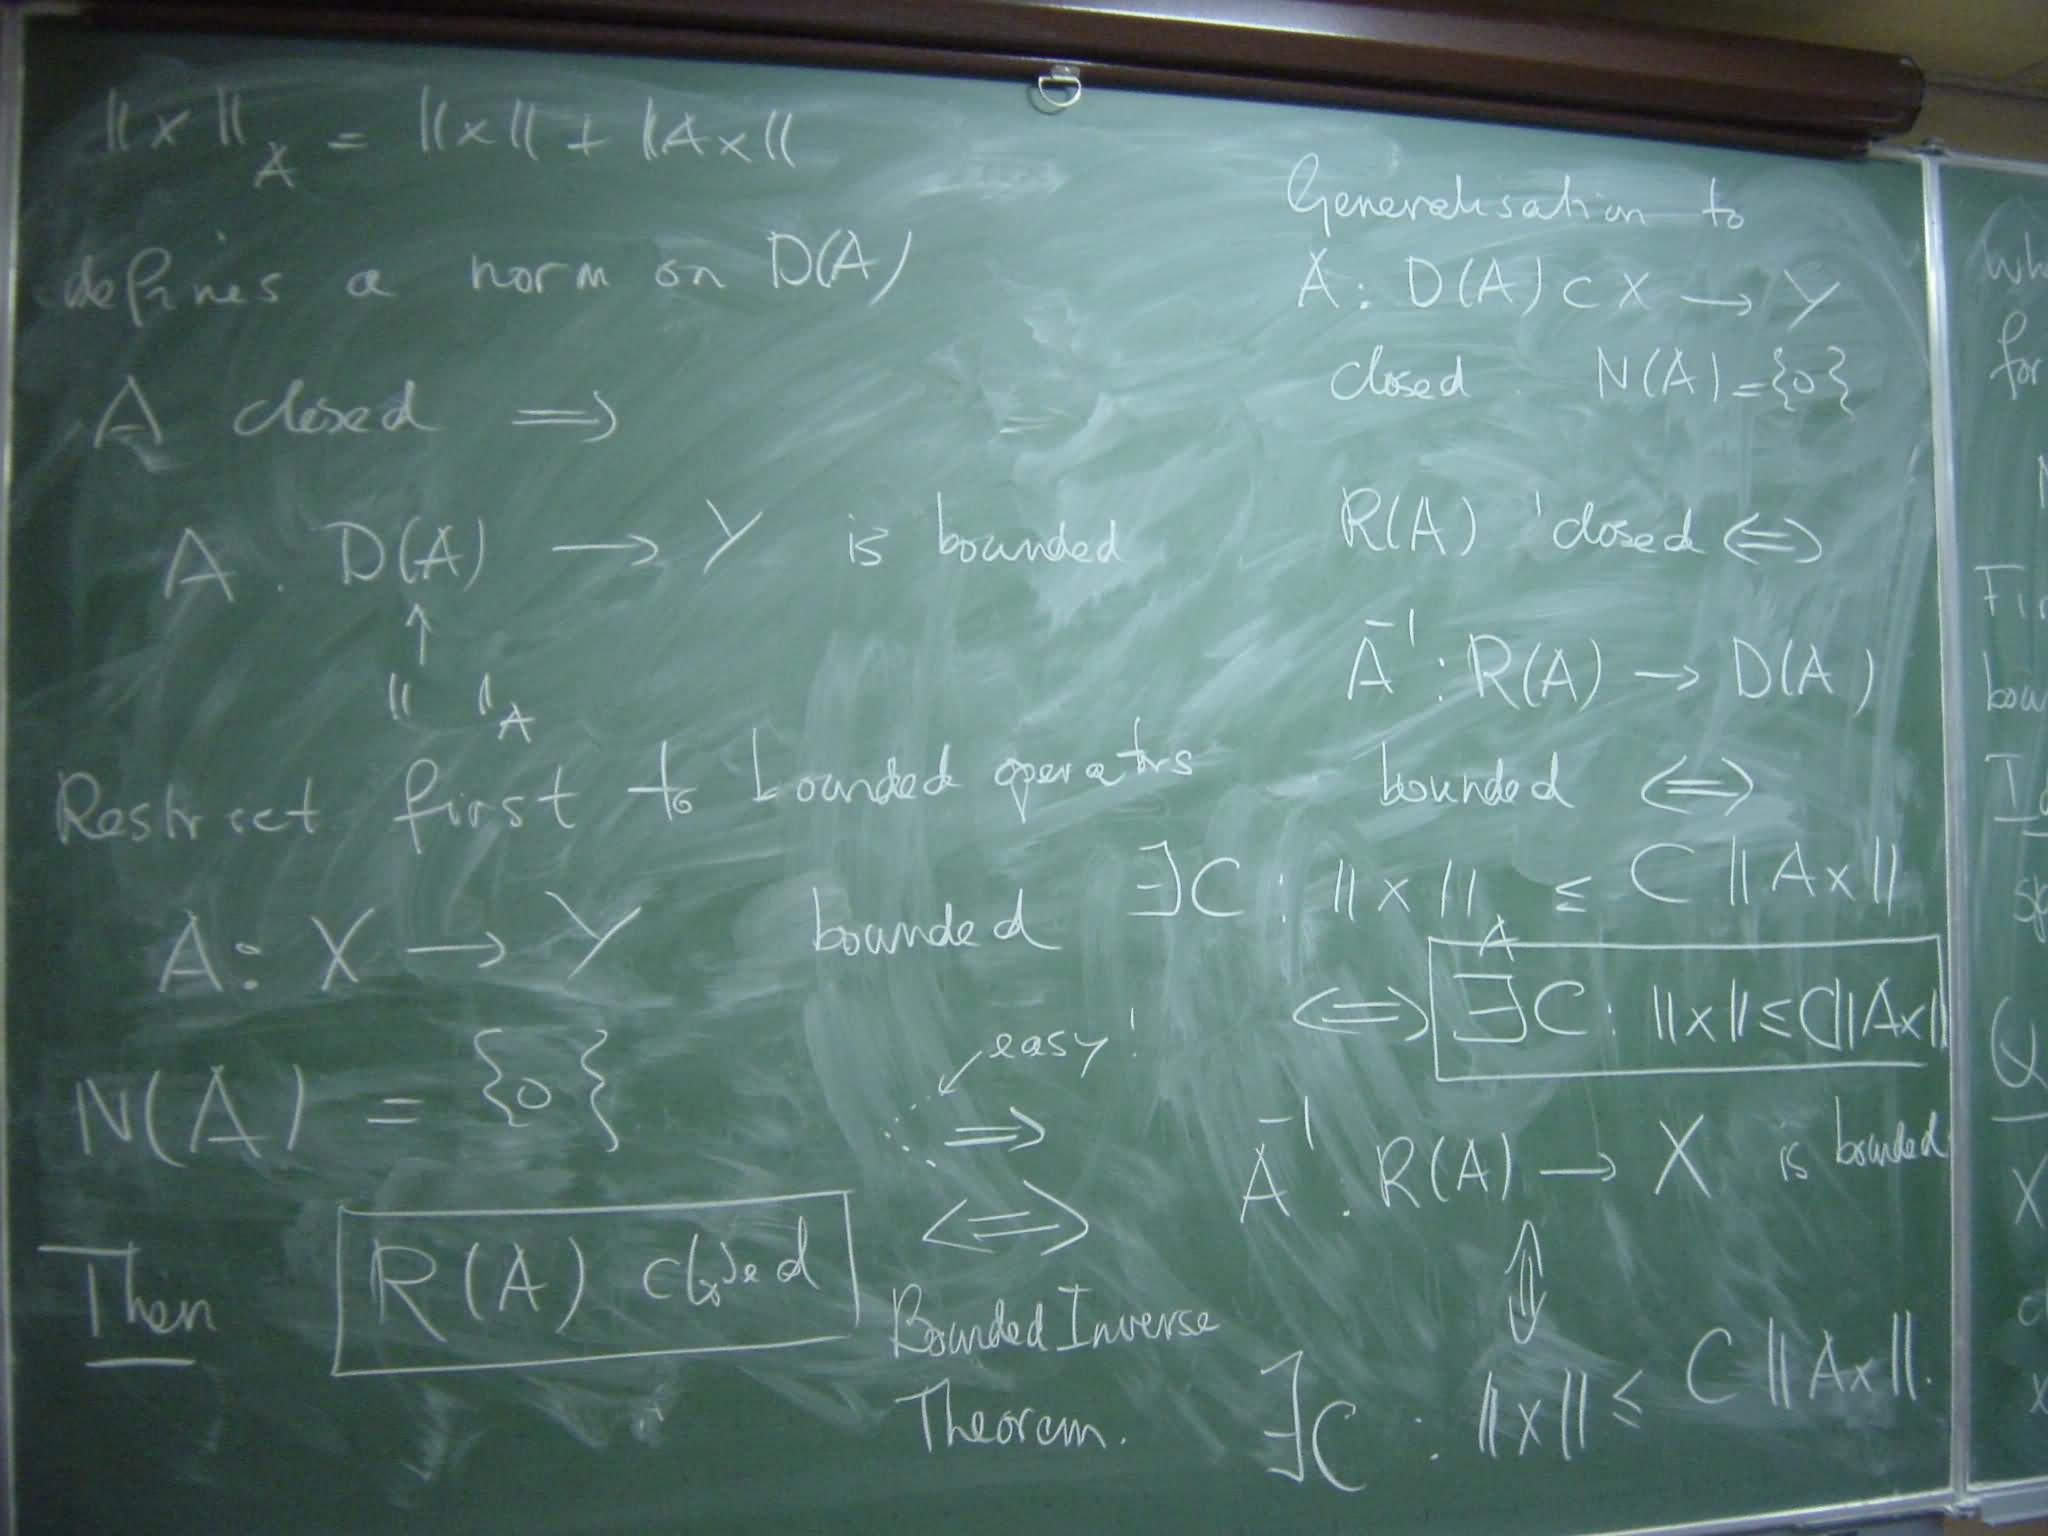 ||x||_A = ||x|| + ||Ax||
defines a norm on D(A)
A closed ⇒
A : D(A) → Y is bounded
↑
|| ||_A
Restrict first to bounded operators
A : X → Y bounded
N(A) = {0}
Then R(A) closed
easy!
⇒
⇔
Bounded Inverse
Theorem.
Generalisation to
A : D(A) ⊂ X → Y
closed N(A) = {0}
R(A) closed ⇔
A⁻¹ : R(A) → D(A)
bounded ⇔
∃C : ||x||_A ≤ C ||Ax||
⇔ ∃C : ||x|| ≤ C||Ax||
A⁻¹ : R(A) → X is bounded
⇕
∃C : ||x|| ≤ C ||Ax||.
for
Q
X